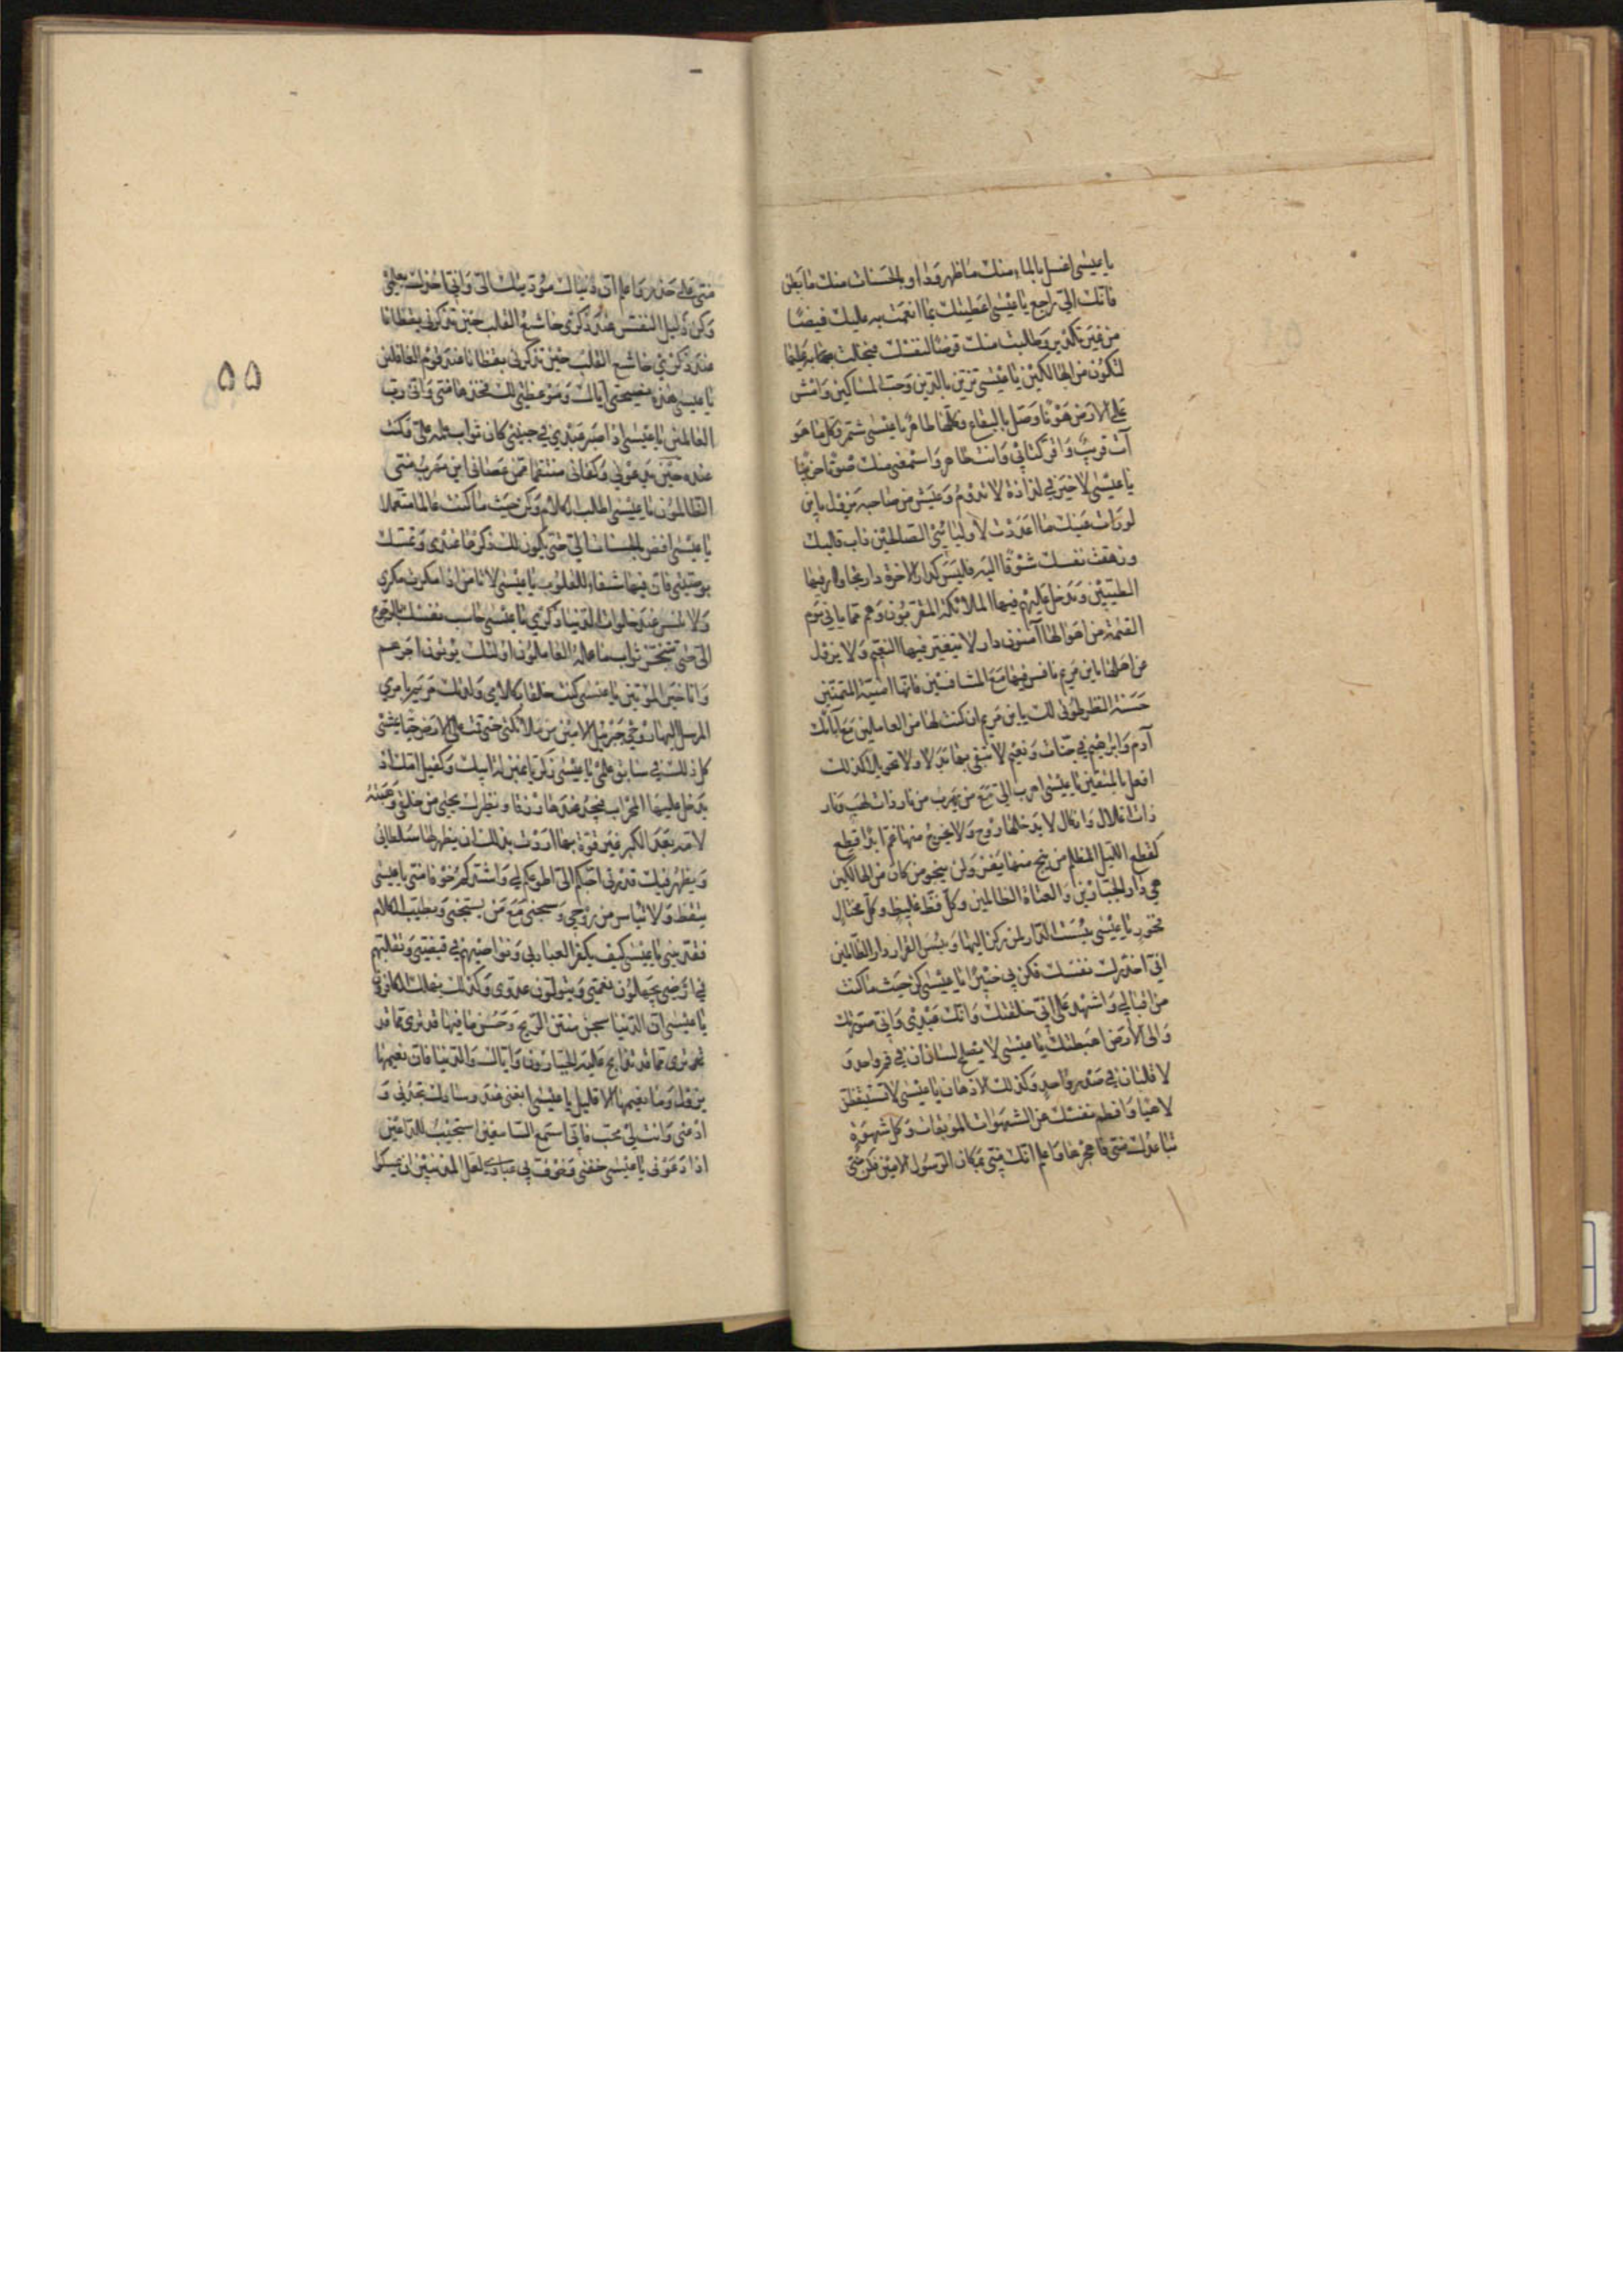 يا عيسى اغسل بالماء منك ما ظهر وداو بالحسنات منك ما بطن
فانك الىّ راجع يا عيسى اعطيتك بما انعمت به عليك فيضًا
من غير تكدير وطلبت منك قرضًا لنفسك فبخلت بها عليها
لتكون من الهالكين يا عيسى تزيّن بالدين وحبّ المساكين وامش
على الارض هونًا وصلّ بالبقاع وكلّها طاهر يا عيسى شمّر وكلّ ما هو
آت قريب واقرأ كتابي وانت طاهر واسمعني منك صوتًا حزينًا
يا عيسى لا خير في لذاذة لا تدوم وعيش من صاحبه يزول يا بن
لو رات عينك ما اعددت لاوليائي الصالحين ذاب قلبك
وزهقت نفسك شوقًا اليه فليس كدار الاخرة دار تجاور فيها
الطيبين وتدخل عليهم فيها الملائكة المقربون وهم مما ياتي يوم
القيمة من اهوالها آمنون دار لا يتغير فيها النعيم ولا يزول
عن اهلها يا بن مريم نافس فيها مع المتنافسين فانها امنية المتمنين
حسنة المنظر طوبى لك يا بن مريم ان كنت لها من العاملين مع آبائك
آدم وابرهيم في جنات ونعيم لا تبغى بها بدلا ولا تحويلا كذلك
افعل بالمتقين يا عيسى اهرب الىّ مع من يهرب من نار ذات لهب ونار
ذات اغلال وانكال لا يدخلها روح ولا يخرج منها غم ابدًا قطع
كقطع الليل المظلم من ينج منها يفز ولن ينجو من كان من الهالكين
هي دار الجبارين والعتاة الظالمين وكل فظ غليظ وكل مختال
فخور يا عيسى بئست الدار لمن ركن اليها وبئس القرار دار الظالمين
اني احذرك نفسك فكن بي خبيرًا يا عيسى كن حيث ما كنت
مراقبا لي واشهد على اني خلقتك وانك عبدي واني صورتك
والى الارض اهبطتك يا عيسى لا يصلح لسانان في فم واحد و
لا قلبان في صدر واحد وكذلك الاذهان يا عيسى لا تستيقظن
لاهيا وافطم نفسك عن الشهوات الموبقات وكل شهوة
تباعدك منى فاهجرها واعلم انك منى بمكان الرسول الامين فكن منى
منى على حذر واعلم ان دنياك مؤديتك الىّ واني اخذك بعلمي
وكن ذليل النفس عند ذكرى خاشع القلب حين تذكرني يقظانا
عند ذكري خاشع القلب حين تذكرني يقظانا عند نوم الغافلين
يا عيسى هذه نصيحتي اياك وموعظتي لك فخذها منى واني رب
العالمين يا عيسى اذا صبر عبدي في جنبي كان ثواب عمله علىّ وكنت
عنده حين يدعوني وكفى بي منتقما ممن عصاني اين يهرب منى
الظالمون يا عيسى اطب الكلام وكن حيث ما كنت عالما متعلما
يا عيسى افض بالحسنات الىّ حتى يكون لك ذكرها عندي وتمسك
بوصيتي فان فيها شفاء للقلوب يا عيسى لا تامن اذا مكرت مكري
ولا تنس عند خلوات الدنيا ذكري يا عيسى حاسب نفسك بالرجوع
الىّ حتى تتنجز ثواب ما عمله العاملون اولئك يؤتون اجرهم
وانا خير المؤتين يا عيسى كنت خلقا بكلامي ولدتك مريم بامري
المرسل اليها روحي جبرئيل الامين من ملائكتي حتى قمت على الارض حيا يمشي
كل ذلك في سابق علمي يا عيسى زكريا بمنزلة ابيك وكفيل امك اذ
يدخل عليها المحراب فيجد عندها رزقا ونظيرك يحيى من خلقي وهبته
لامه بعد الكبر غير قوة بها اردت بذلك ان يظهر لها سلطاني
ويظهر فيك قدرتي احبكم الىّ اطوعكم لي واشدكم خوفا منى يا عيسى
تيقظ ولا تيأس من روحي وسبحني مع من يسبحني وبطيب الكلام
فقدسني يا عيسى كيف يكفر العباد بي ونواصيهم في قبضتي وتقلبهم
في ارضي يجهلون نعمتي ويتولون عدوى وكذلك يهلك الكافرون
يا عيسى ان الدنيا سجن منتن الريح وحسن ما فيها قد ترى مما قد
تذابح عليه الجبارون واياك والدنيا فان نعيمها
يزول وما نعيمها الا قليل يا عيسى ابغني عند وسادك تجدني و
ادعني وانت لي محب فاني اسمع السامعين استجيب للداعين
اذا دعوني يا عيسى خفني وخوف بي عبادي لعل المذنبين ان يمسكوا
۵۵